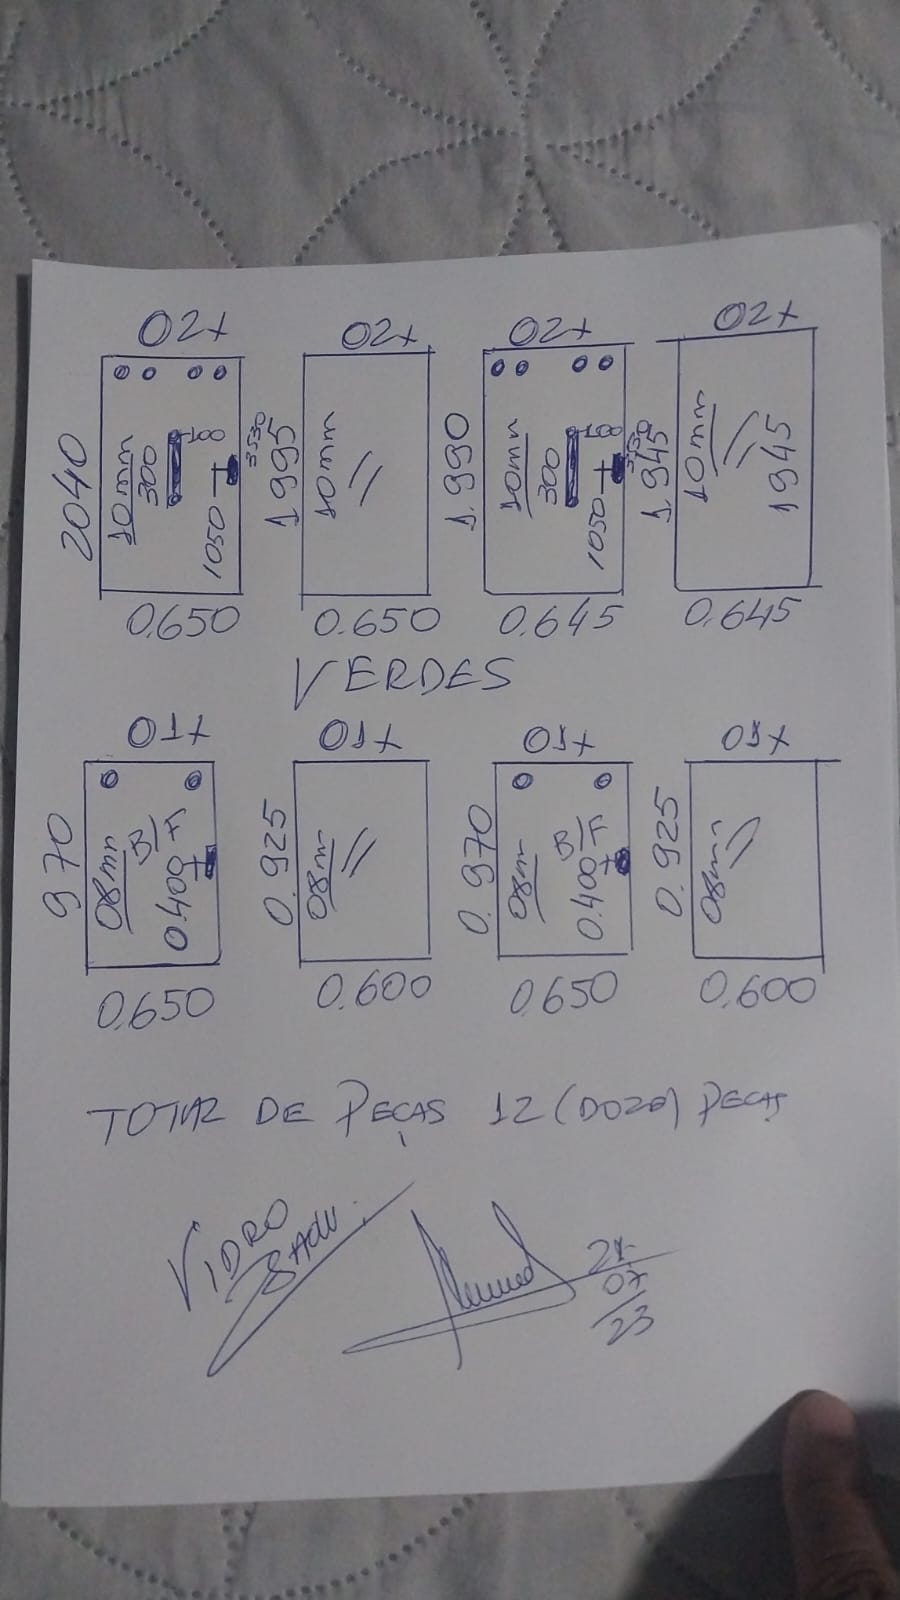 02x 02x 02x 02x
2040 10mm 300 100 1050 3530
1995 10mm
1.990 10mm 300 100 1050 3530
1.945 10mm 1945
0.650 0.650 0.645 0.645
VERDES
01x 01x 01x 01x
970 08mm B/F 0.400
0.925 08mm
0.970 08mm B/F 0.400
0.925 08mm
0.650 0.600 0.650 0.600
TOTAL DE PEÇAS 12 (DOZE) PEÇAS
VIDRO
07
23